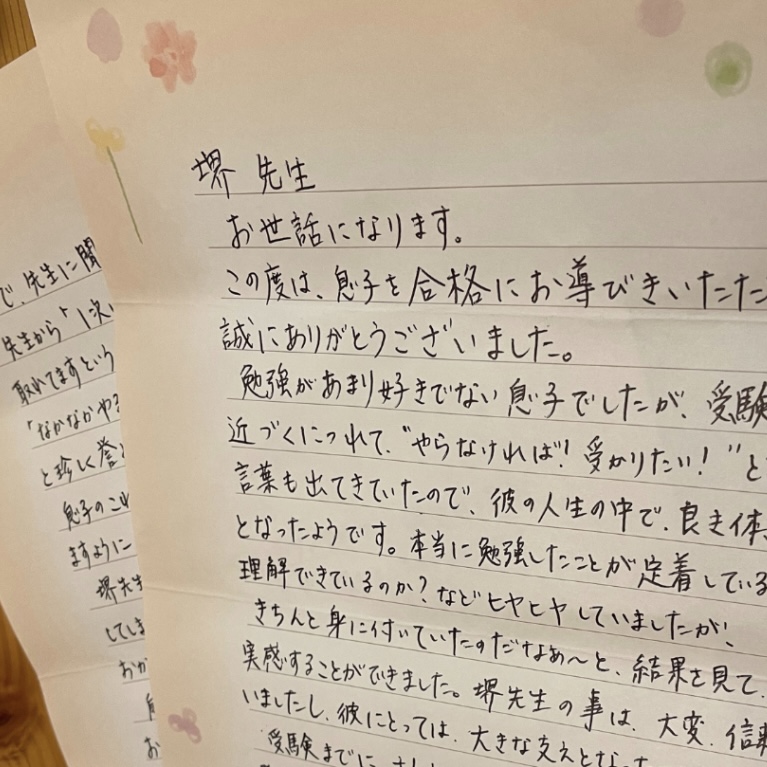 堺 先生
お世話になります。
この度は、息子を合格にお導びきいただ
誠にありがとうございました。
勉強があまり好きでない息子でしたが、受験
近づくにつれて、“やらなければ!受かりたい!”と
言葉も出てきていたので、彼の人生の中で、良き体
となったようです。本当に勉強したことが定着している
理解できているのか?などヒヤヒヤしていましたが、
きちんと身に付いていたのだなぁ〜と、結果を見て、
実感することができました。堺先生の事は、大変、信頼
いましたし、彼にとっては、大きな支えとなった
受験までに、
で、先生に聞
先生から「1次
取れてますという
「なかなかやる
と珍しく誉
息子のこれ
ますように
堺先生
してしま
おか
お